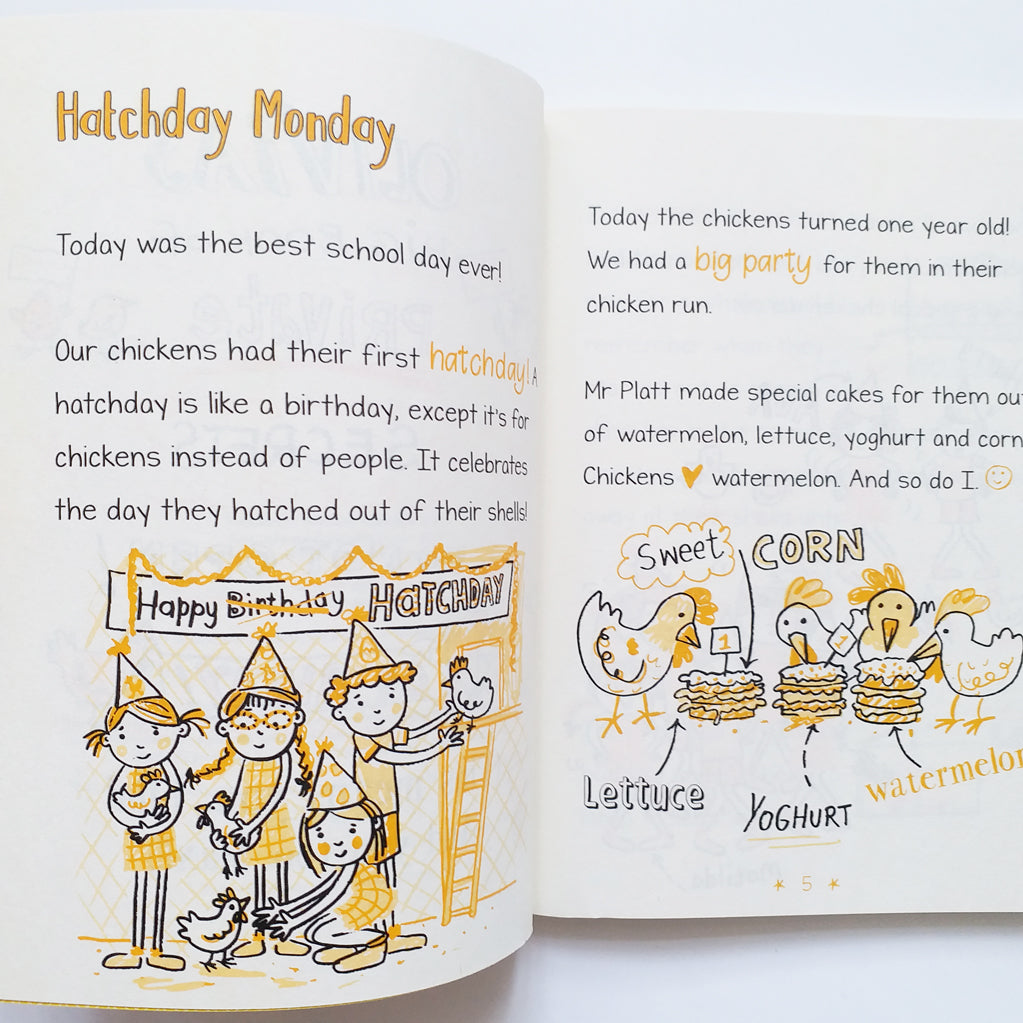 Hatchday Monday
Today was the best school day ever!
Our chickens had their first hatchday! A
hatchday is like a birthday, except it's for
chickens instead of people. It celebrates
the day they hatched out of their shells!
Happy Birthday HATCHDAY
Today the chickens turned one year old!
We had a big party for them in their
chicken run.
Mr Platt made special cakes for them out
of watermelon, lettuce, yoghurt and corn
Chickens ♥ watermelon. And so do I. ☺
Sweet CORN
1
1
Lettuce
YOGHURT
watermelon
★ 5 ★